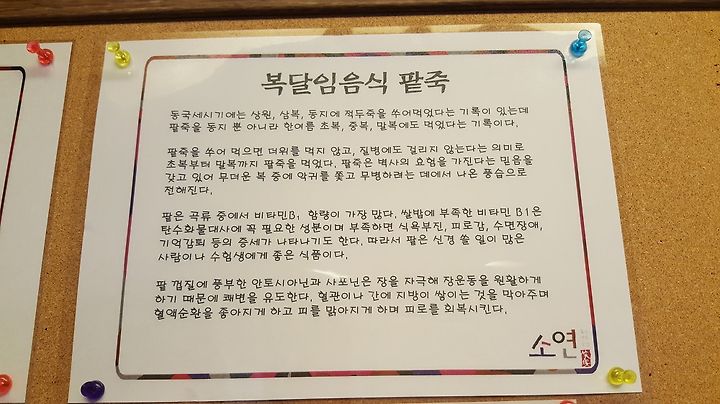 복달임음식 팥죽
동국세시기에는 상원, 삼복, 동지에 적두죽을 쑤어먹었다는 기록이 있는데
팥죽을 동지 뿐 아니라 한여름 초복, 중복, 말복에도 먹었다는 기록이다.
팥죽을 쑤어 먹으면 더위를 먹지 않고, 질병에도 걸리지 않는다는 의미로
초복부터 말복까지 팥죽을 먹었다. 팥죽은 벽사의 효험을 가진다는 믿음을
갖고 있어 무더운 복 중에 악귀를 쫓고 무병하려는 데에서 나온 풍습으로
전해진다.
팥은 곡류 중에서 비타민B₁ 함량이 가장 많다. 쌀밥에 부족한 비타민 B1은
탄수화물대사에 꼭 필요한 성분이며 부족하면 식욕부진, 피로감, 수면장애,
기억감퇴 등의 증세가 나타나기도 한다. 따라서 팥은 신경 쓸 일이 많은
사람이나 수험생에게 좋은 식품이다.
팥 껍질에 풍부한 안토시아닌과 사포닌은 장을 자극해 장운동을 원활하게
하기 때문에 쾌변을 유도한다. 혈관이나 간에 지방이 쌓이는 것을 막아주며
혈액순환을 좋아지게 하고 피를 맑아지게 하며 피로를 회복시킨다.
소연